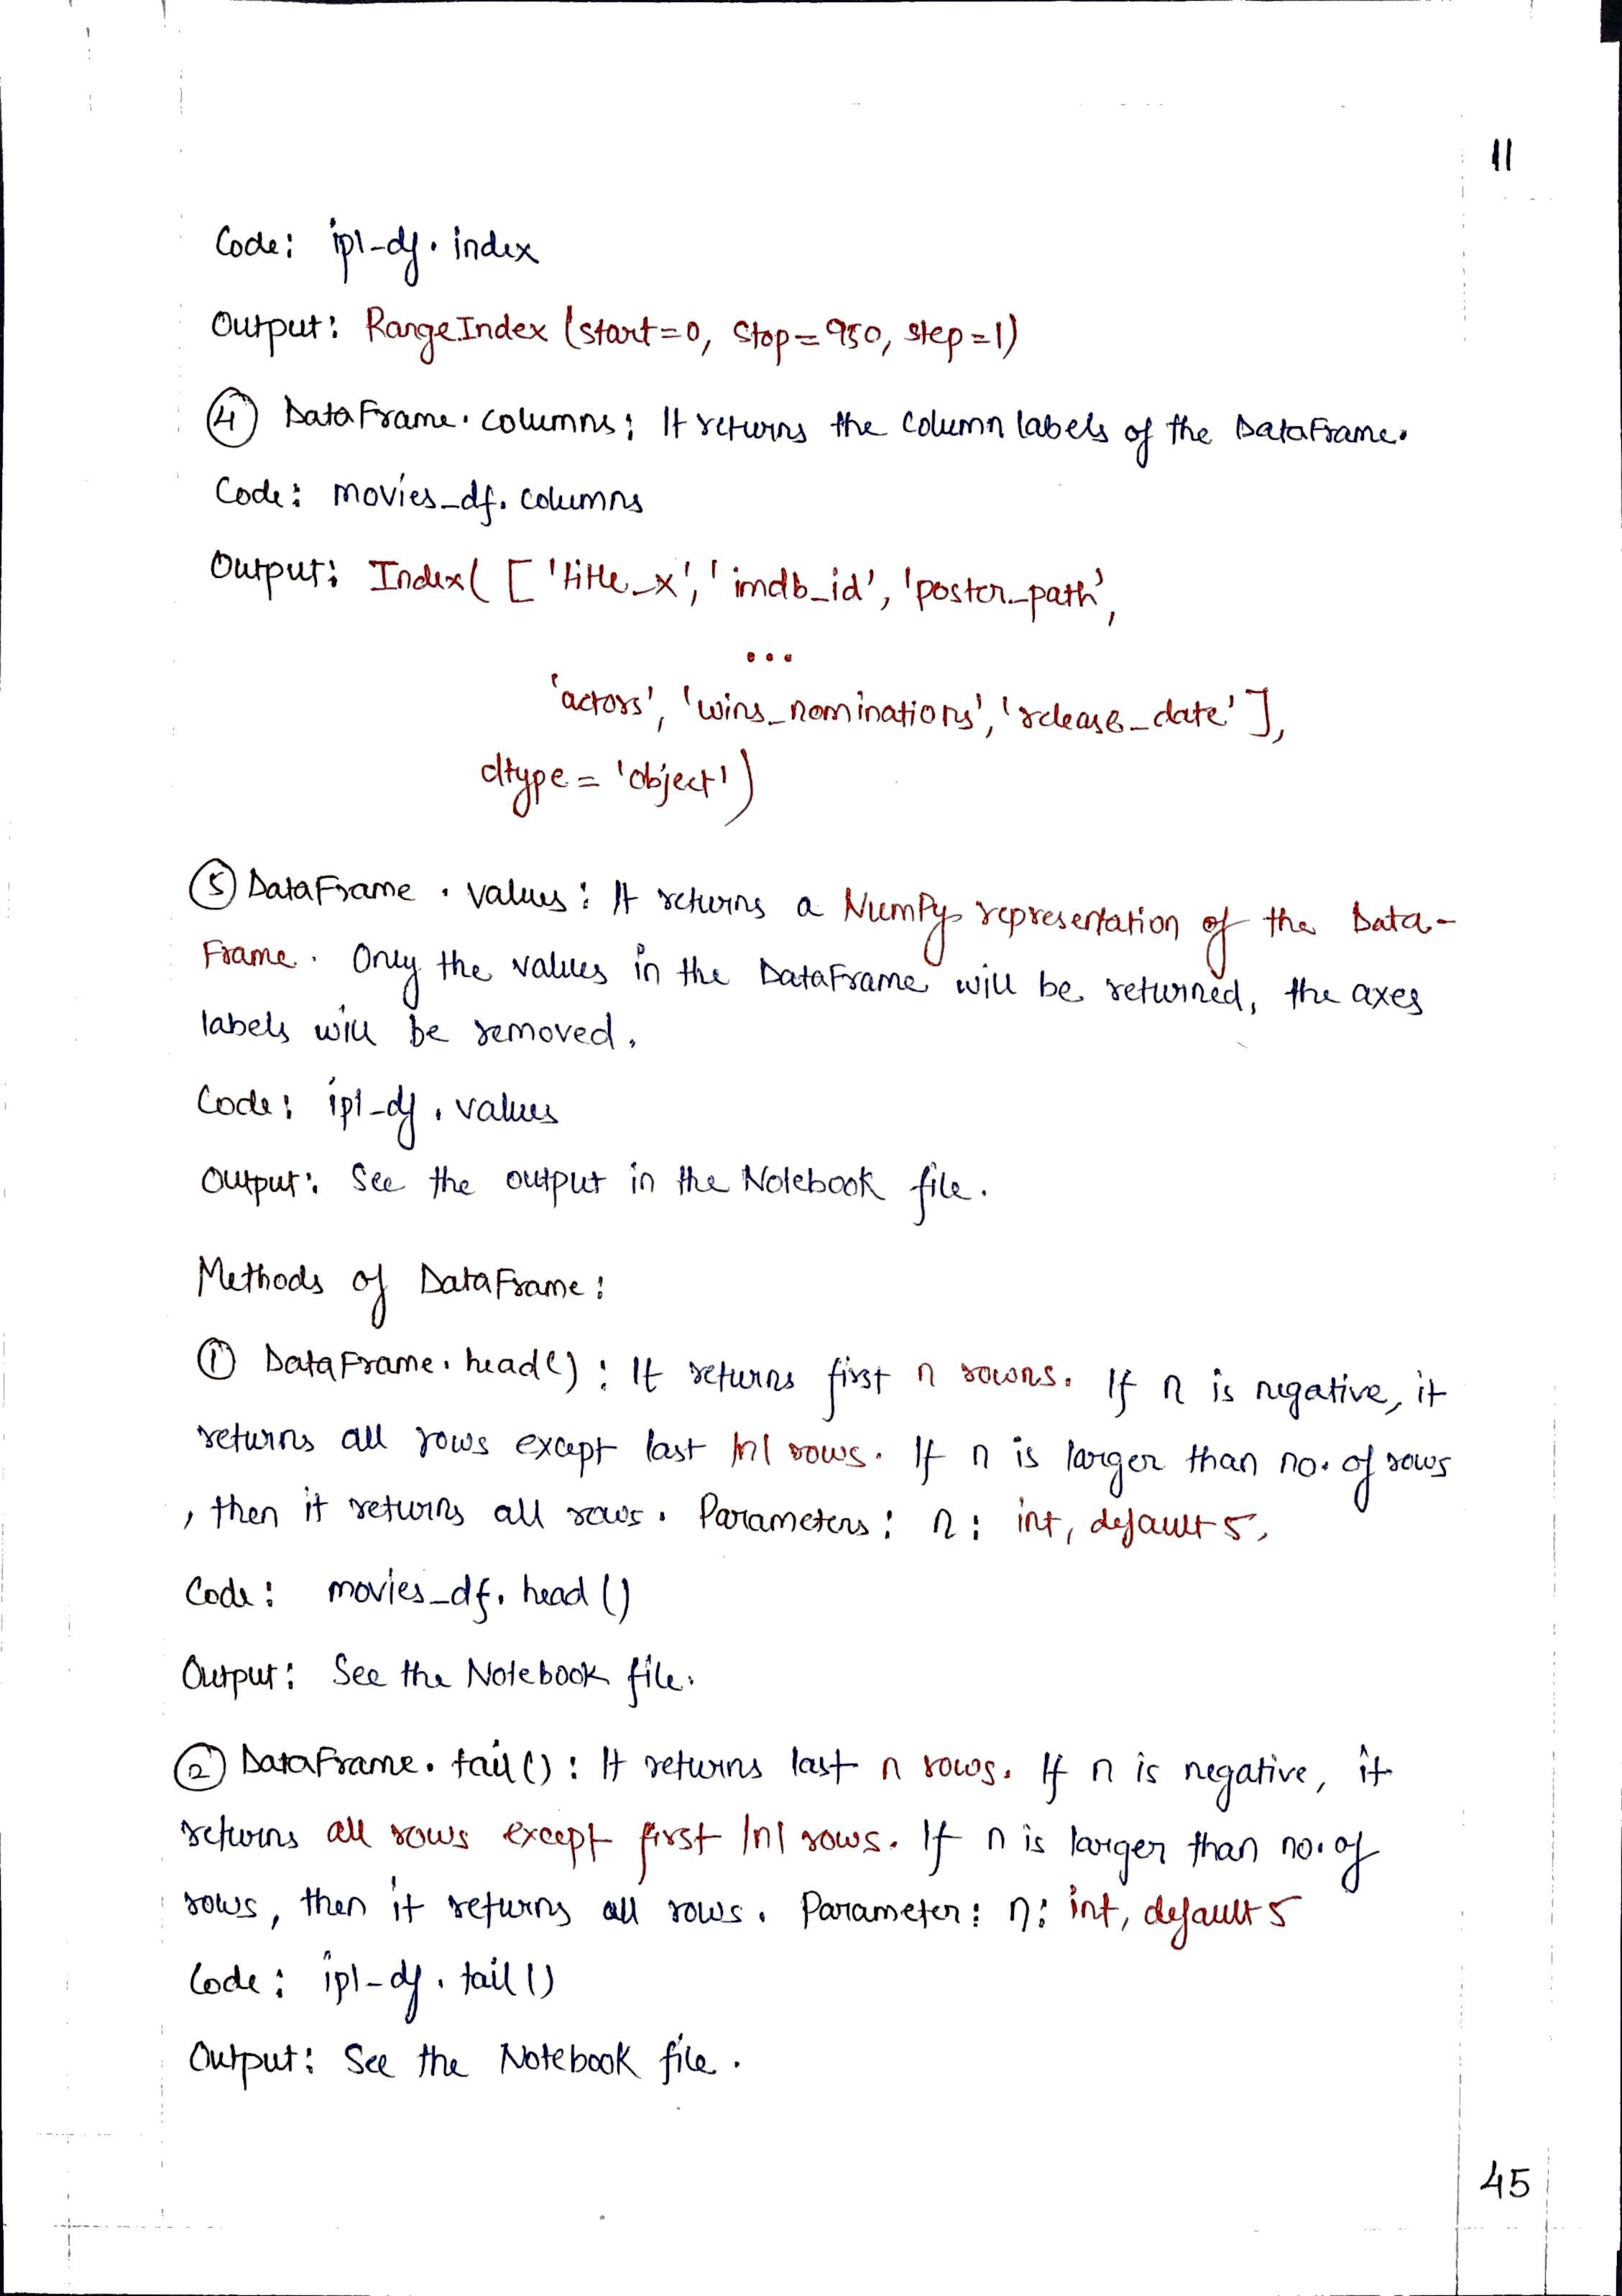 11
Code: ipl_df.index
Output: RangeIndex (start=0, stop=950, step=1)
4 DataFrame.columns: It returns the column labels of the DataFrame.
Code: movies_df.columns
Output: Index( ['title_x', 'imdb_id', 'poster_path',
...
'actors', 'wins_nominations', 'release_date'],
dtype = 'object')
5 DataFrame.values: It returns a NumPy representation of the Data-
Frame. Only the values in the DataFrame will be returned, the axes
labels will be removed.
Code: ipl_df.values
Output: See the output in the Notebook file.
Methods of DataFrame:
1 DataFrame.head(): It returns first n rowns. If n is negative, it
returns all rows except last |n| rows. If n is larger than no. of rows
, then it returns all rows. Parameters: n: int, default 5.
Code: movies_df.head()
Output: See the Notebook file.
2 DataFrame.tail(): It returns last n rows. If n is negative, it
returns all rows except first |n| rows. If n is larger than no. of
rows, then it returns all rows. Parameter: n: int, default 5
Code: ipl_df.tail()
Output: See the Notebook file.
45